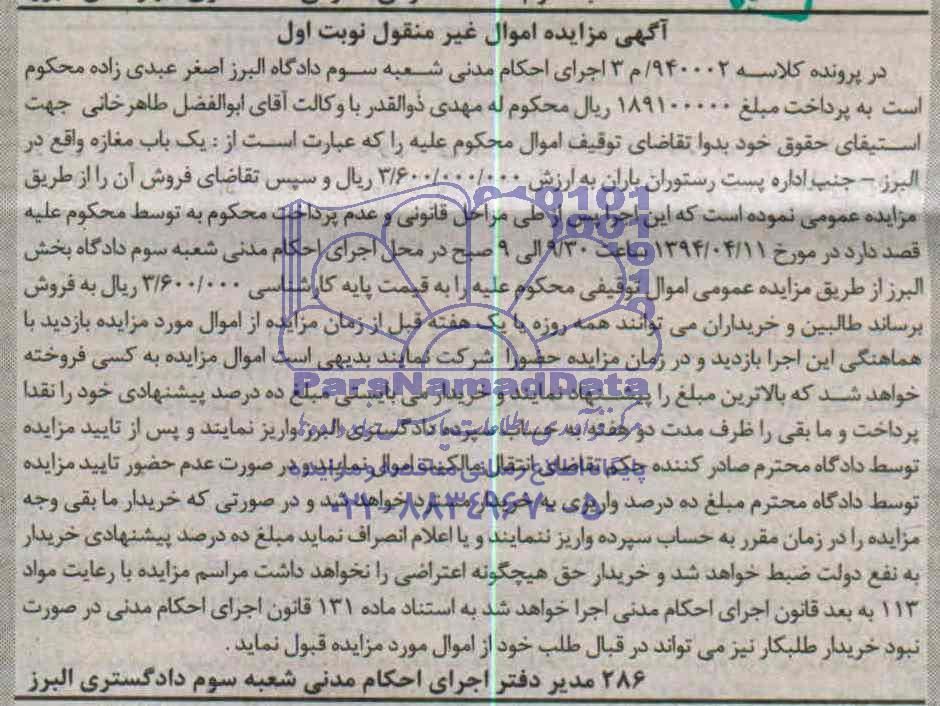 آگهی مزایده اموال غیر منقول نوبت اول
در پرونده کلاسه ۹۴۰۰۰۲/ م ۳ اجرای احکام مدنی شعبه سوم دادگاه البرز اصغر عبدی زاده محکوم
است به پرداخت مبلغ ۱۸۹۱۰۰۰۰۰ ریال محکوم له مهدی ذوالقدر با وکالت آقای ابوالفضل طاهرخانی جهت
استیفای حقوق خود بدوا تقاضای توقیف اموال محکوم علیه را که عبارت است از : یک باب مغازه واقع در
البرز - جنب اداره پست رستوران باران به ارزش ۳/۶۰۰/۰۰۰/۰۰۰ ریال و سپس تقاضای فروش آن را از طریق
مزایده عمومی نموده است که این اجرا پس از طی مراحل قانونی و عدم پرداخت محکوم به توسط محکوم علیه
قصد دارد در مورخ ۱۳۹۴/۰۴/۱۱ ساعت ۹/۳۰ الی ۹ صبح در محل اجرای احکام مدنی شعبه سوم دادگاه بخش
البرز از طریق مزایده عمومی اموال توقیفی محکوم علیه را به قیمت پایه کارشناسی ۳/۶۰۰/۰۰۰ ریال به فروش
برساند طالبین و خریداران می توانند همه روزه یا یک هفته قبل از زمان مزایده از اموال مورد مزایده بازدید با
هماهنگی این اجرا بازدید و در زمان مزایده حضورا شرکت نمایند بدیهی است اموال مزایده به کسی فروخته
خواهد شد که بالاترین مبلغ را پیشنهاد نمایند و خریدار می بایستی مبلغ ده درصد پیشنهادی خود را نقدا
پرداخت و ما بقی را ظرف مدت دو هفته به حساب سپرده دادگستری البرز واریز نمایند و پس از تایید مزایده
توسط دادگاه محترم صادر کننده حکم تقاضای انتقال مالکیت اموال نمایند و در صورت عدم حضور تایید مزایده
توسط دادگاه محترم مبلغ ده درصد واریزی به خریدار مسترد خواهد شد و در صورتی که خریدار ما بقی وجه
مزایده را در زمان مقرر به حساب سپرده واریز ننمایند و یا اعلام انصراف نماید مبلغ ده درصد پیشنهادی خریدار
به نفع دولت ضبط خواهد شد و خریدار حق هیچگونه اعتراضی را نخواهد داشت مراسم مزایده با رعایت مواد
۱۱۳ به بعد قانون اجرای احکام مدنی اجرا خواهد شد به استناد ماده ۱۳۱ قانون اجرای احکام مدنی در صورت
نبود خریدار طلبکار نیز می تواند در قبال طلب خود از اموال مورد مزایده قبول نماید .
۲۸۶ مدیر دفتر اجرای احکام مدنی شعبه سوم دادگستری البرز
ParsNamadData
۰۲۱-۸۸۳۴۹۶۷۰-۵